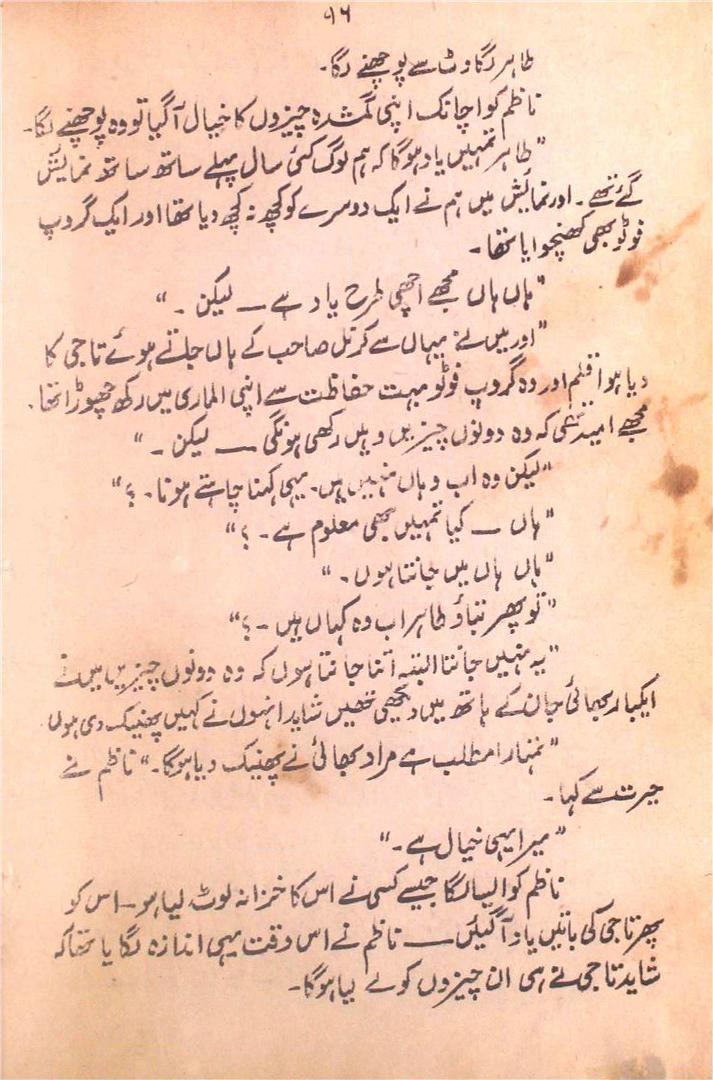 ۹۶
طاہر لگاوٹ سے پوچھنے لگا۔
ناظم کو اچانک اپنی گمشدہ چیزوں کا خیال آگیا تو وہ پوچھنے لگا۔
"طاہر تمہیں یاد ہوگا کہ ہم لوگ کئی سال پہلے ساتھ ساتھ نمائش
گئے تھے۔ اور نمائش میں ہم نے ایک دوسرے کو کچھ نہ کچھ دیا تھا اور ایک گروپ
فوٹو بھی کھنچوایا تھا۔
"ہاں ہاں مجھے اچھی طرح یاد ہے — لیکن۔"
"اور میں نے یہاں سے کرنل صاحب کے ہاں جاتے ہوئے تاجی کا
دیا ہوا قلم اور وہ گروپ فوٹو بہت حفاظت سے اپنی الماری میں رکھ چھوڑا تھا۔
مجھے امید تھی کہ وہ دونوں چیزیں وہیں رکھی ہونگی — لیکن۔"
"لیکن وہ اب وہاں نہیں ہیں۔ یہی کہنا چاہتے ہو نا۔؟"
"ہاں — کیا تمہیں بھی معلوم ہے۔؟"
"ہاں ہاں میں جانتا ہوں۔"
"تو پھر بتاؤ طاہر اب وہ کہاں ہیں۔؟"
"یہ نہیں جانتا البتہ اتنا جانتا ہوں کہ وہ دونوں چیزیں میں نے
ایکبار بھائی جان کے ہاتھ میں دیکھی تھیں شاید انہوں نے کہیں پھینک دی ہوں
"تمہارا مطلب ہے مراد بھائی نے پھینک دیا ہوگا۔" ناظم نے
حیرت سے کہا۔
"میرا یہی خیال ہے۔"
ناظم کو ایسا لگا جیسے کسی نے اس کا خزانہ لوٹ لیا ہو۔ اس کو
پھر تاجی کی باتیں یاد آگئیں — ناظم نے اس وقت یہی اندازہ لگایا تھا کہ
شاید تاجی نے ہی ان چیزوں کو لے لیا ہوگا۔